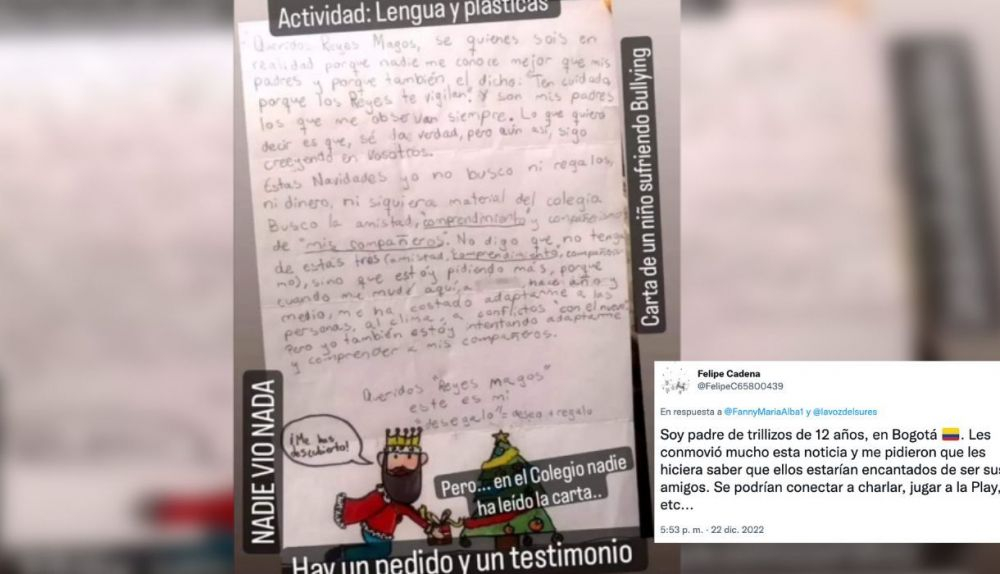 Actividad: Lengua y plásticas
Queridos Reyes Magos, se quienes sois en
realidad porque nadie me conoce mejor que mis
padres y porque también el dicho: "Ten cuidado
porque los Reyes te vigilan". Y son mis padres
los que me "observan" siempre. Lo que quiero
decir es que, sé la verdad, pero aún así, sigo
creeyendo en vosotros.
Estas Navidades yo no busco ni regalos,
ni dinero, ni siquiera material del colegio
Busco la amistad, "comprendimiento" y compañerismo
de "mis compañeros". No digo que no tenga
de estas tres (amistad, comprendimiento, compañeris-
mo), sino que estoy pidiendo más, porque
cuando me mudé aquí, a hace año y
medio, me ha costado adaptarme a las
personas, al clima, a conflictos "con el nuevo".
Pero yo también estoy intentando adaptarme
y comprender a mis compañeros.
Queridos "Reyes Magos"
este es mi
"desegalo" = deseo + regalo
¡Me has
descubierto!
Carta de un niño sufriendo Bullying
NADIE VIO NADA
Pero... en el Colegio nadie
ha leído la carta..
Hay un pedido y un testimonio
Felipe Cadena
@FelipeC65800439
En respuesta a @FannyMariaAlba1 y @lavozdelsures
Soy padre de trillizos de 12 años, en Bogotá 🇨🇴. Les
conmovió mucho esta noticia y me pidieron que les
hiciera saber que ellos estarían encantados de ser sus
amigos. Se podrían conectar a charlar, jugar a la Play,
etc...
5:53 p. m. · 22 dic. 2022